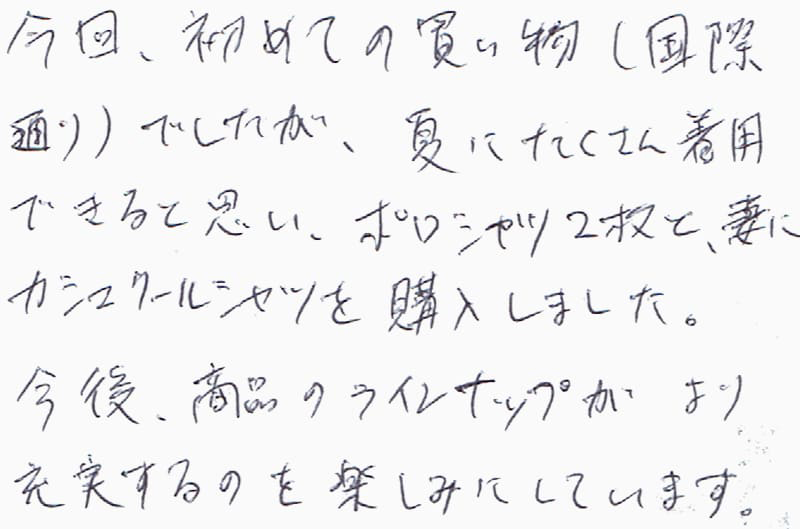 今回、初めての買い物(国際
通り)でしたが、夏にたくさん着用
できると思い、ポロシャツ2枚と、妻に
カシュクールシャツを購入しました。
今後、商品のラインナップがより
充実するのを楽しみにしています。